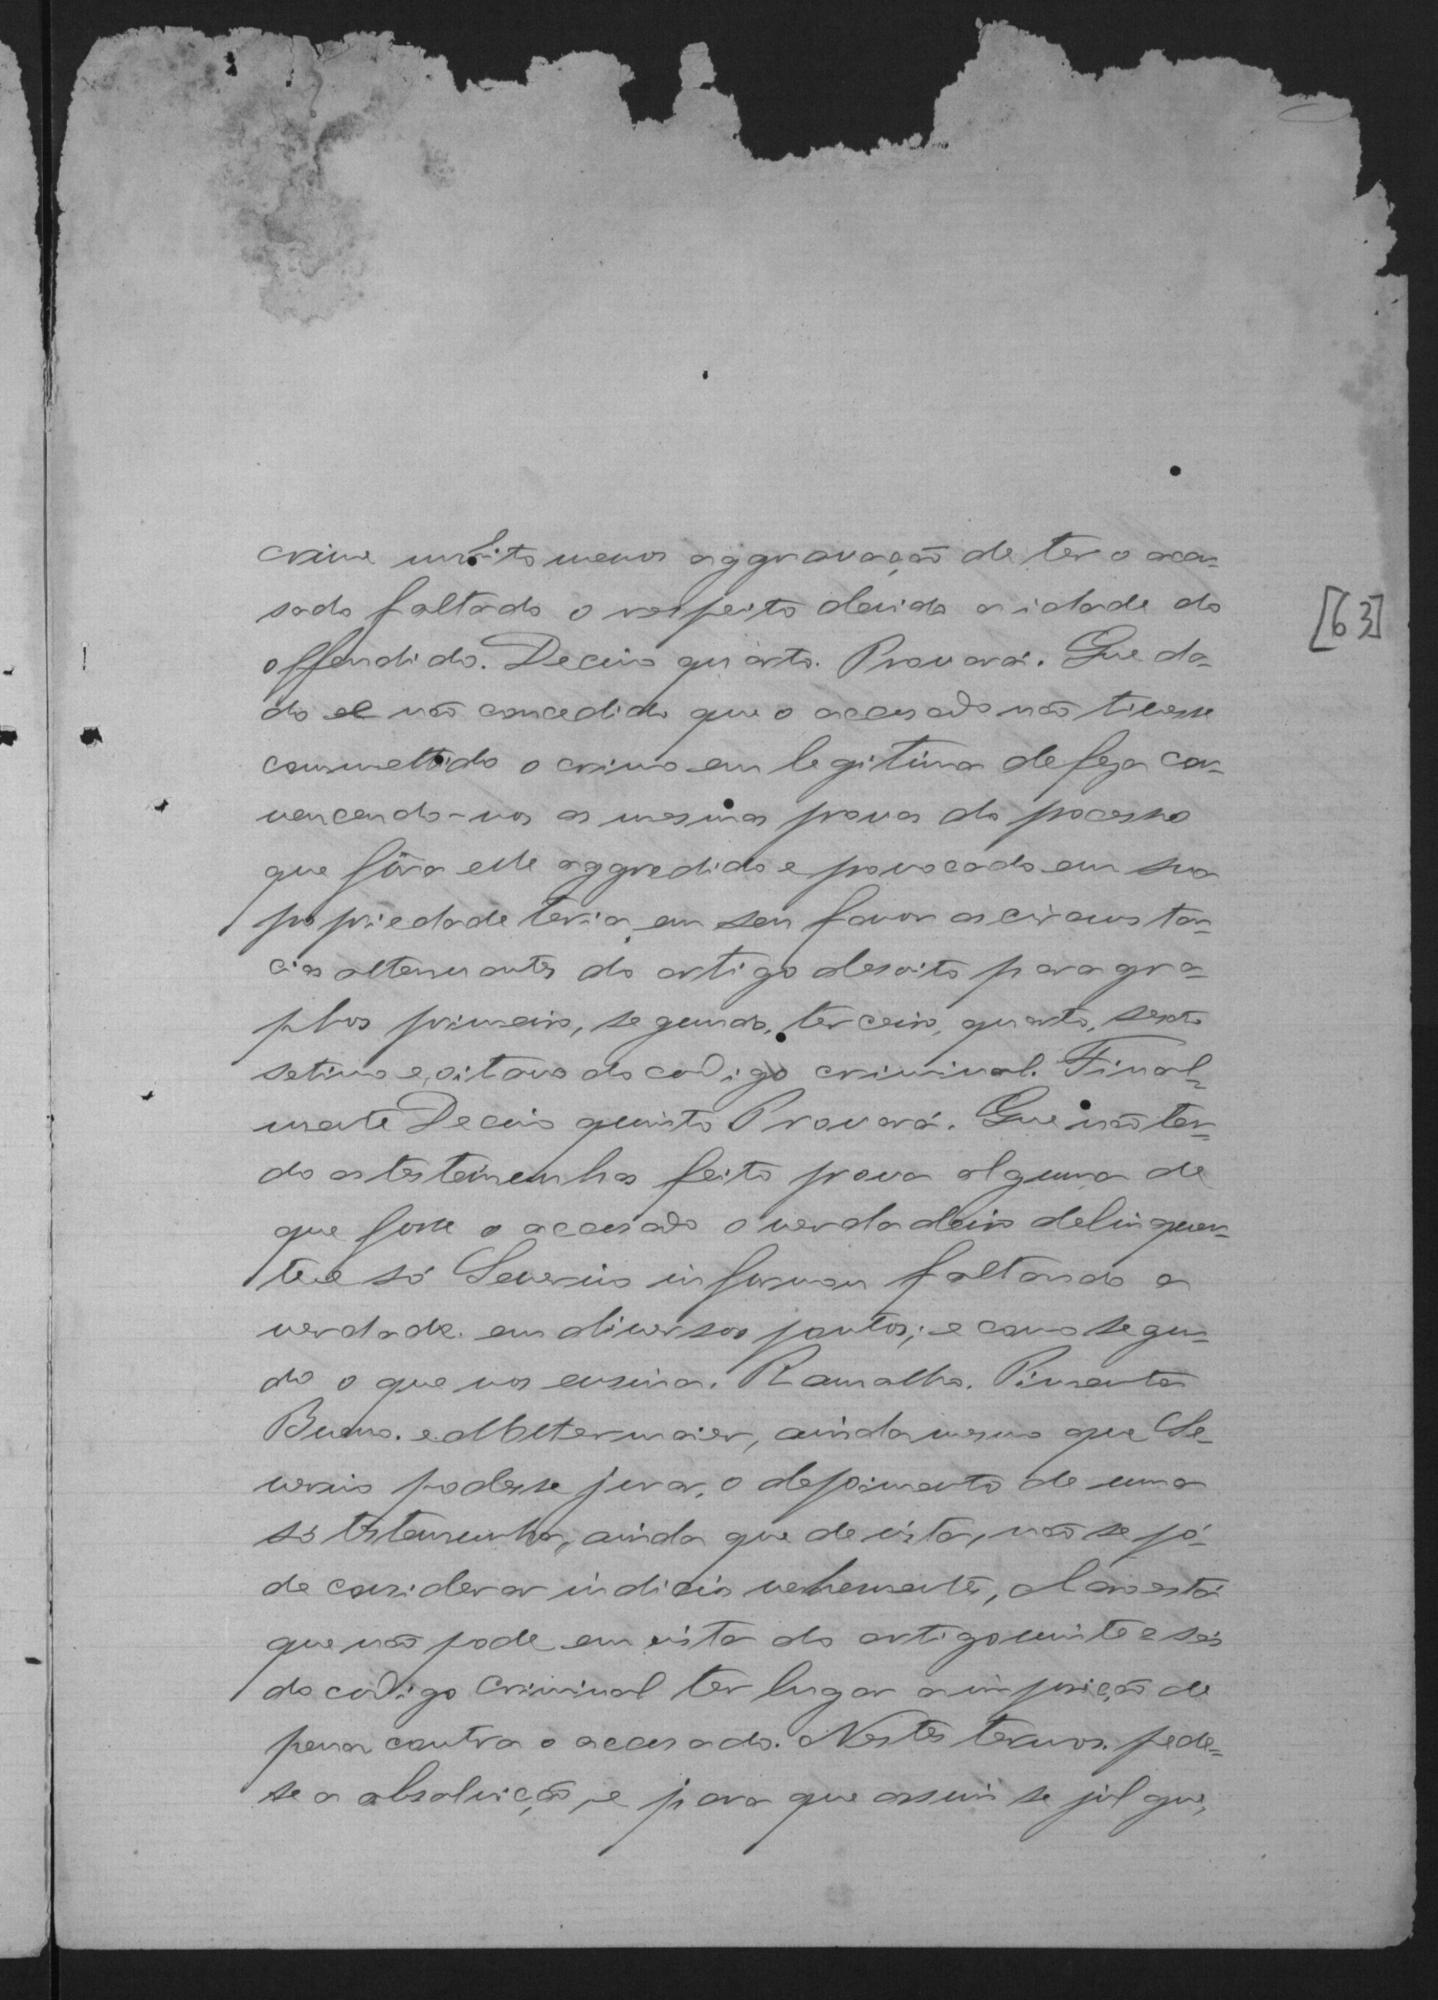 crime muito menos aggravação de ter o acu-
sado faltado o respeito devido a idade do
offendido. Decimo quarto. Provará. Que da-
do e não concedido que o accusado não tivesse
commettido o crime em legitima defeza con-
vencendo-nos as mesmas provas do pocesso
que fôra elle aggredido e provocado em sua
propriedade teria em seu favor as circunstan-
cias attenuantes do artigo desoito paragra-
phos primeiro, segundo, terceiro, quarto, sexto
setimo e oitavo do codigo criminal. Final-
mente Decimo quinto Provará. Que não ten-
do as testemunhas feito prova alguma de
que fosse o accusado o verdadeiro delinquen-
te e só Severino informou faltando a
verdade em diversos pontos; e como segun-
do o que nos ensina. Ramalho. Pimenta
Bueno. e Mittermaier, ainda mesmo que Se-
verino podesse jurar, o depoimento de uma
só testemunha, ainda que de vista, não se pó-
de considerar indicio vehemente, claro está
que não pode em vista do artigo vinte e seis
do codigo criminal ter lugar a imposição de
pena contra o accusado. Nestes termos. pede-
se a absolvição, e para que assim se julgue,
[63]